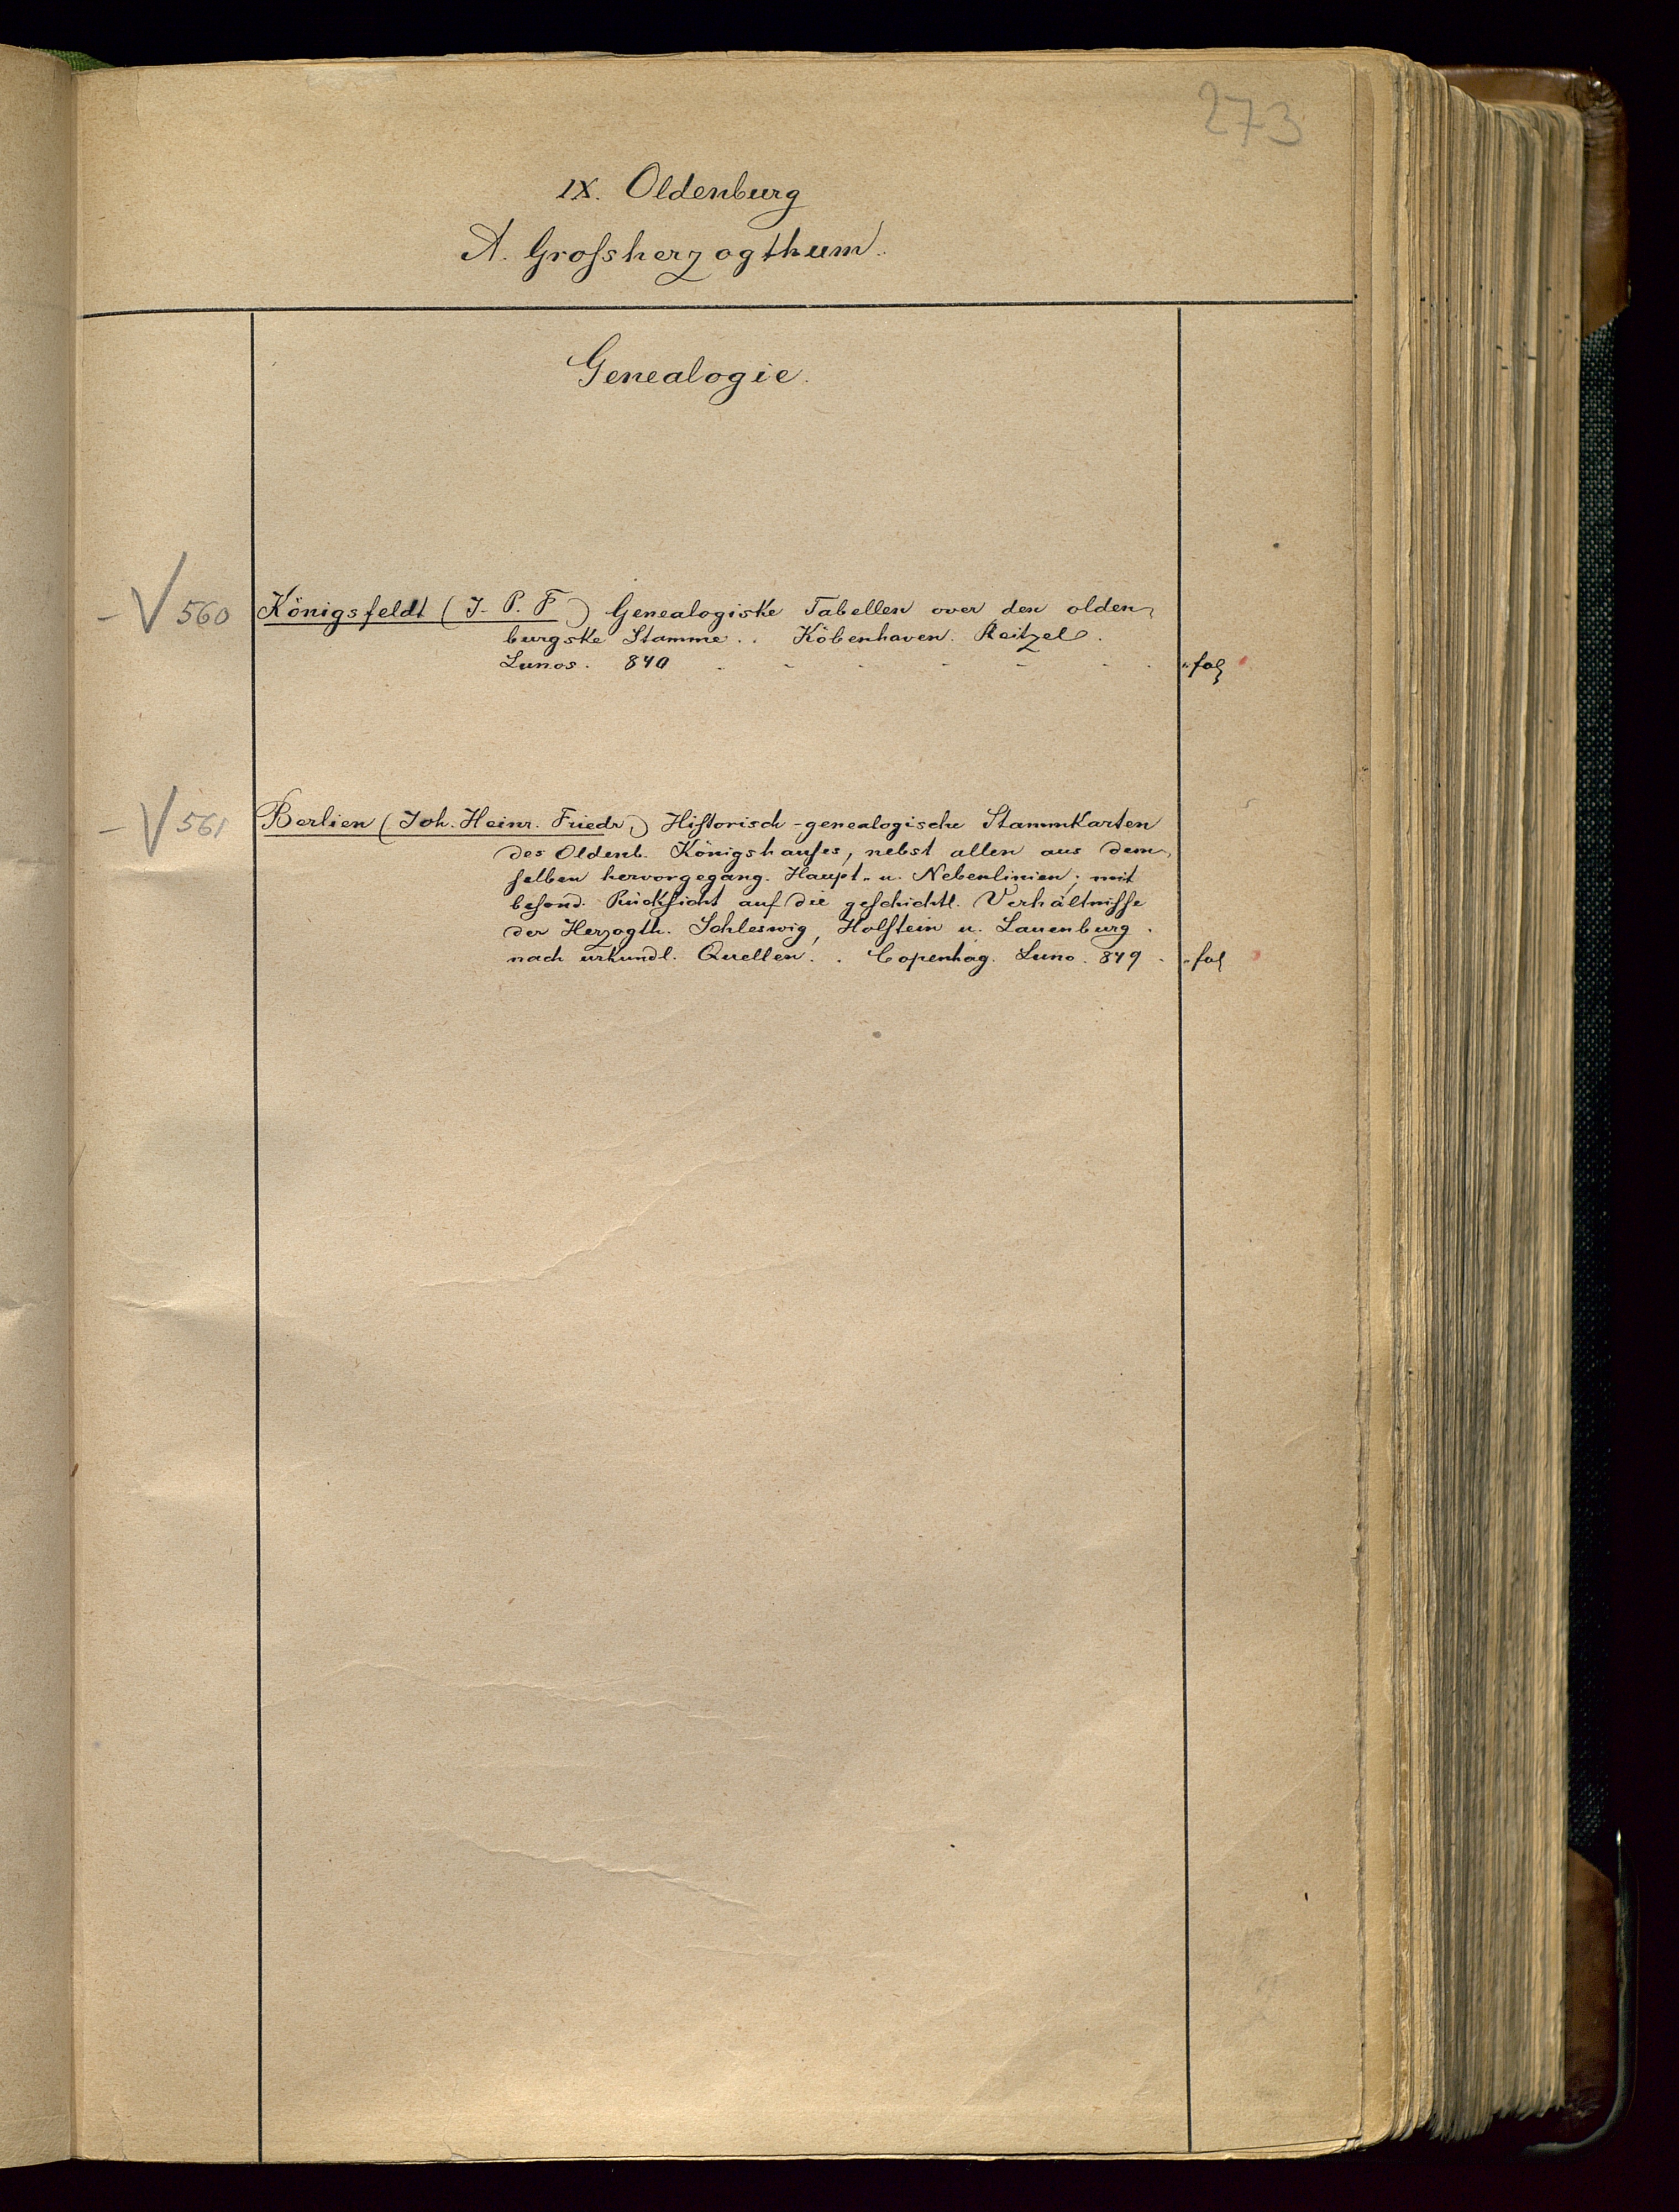 273
IX. Oldenburg
A. Grofsherzogthum.
Genealogie.
- √ 560 Königsfeldt (J. P. F) Genealogiske Tabellen over den olden-
burgske Stamme.. Köbenhaven. Reitzel.
Lunos. 840 - - - - - - fol
- √ 561 Berlien (Joh. Heinr. Friedr.) Historisch-genealogische Stammkarten
des Oldenb. Königshauses, nebst allen aus dem-
selben hervorgegang. Haupt- u. Nebenlinien; mit
besond. Rücksicht auf die geschichtl. Verhältnisse
der Herzogth. Schleswig, Holstein u. Lauenburg.
nach urkundl. Quellen.. Copenhag. Luno. 849 - fol